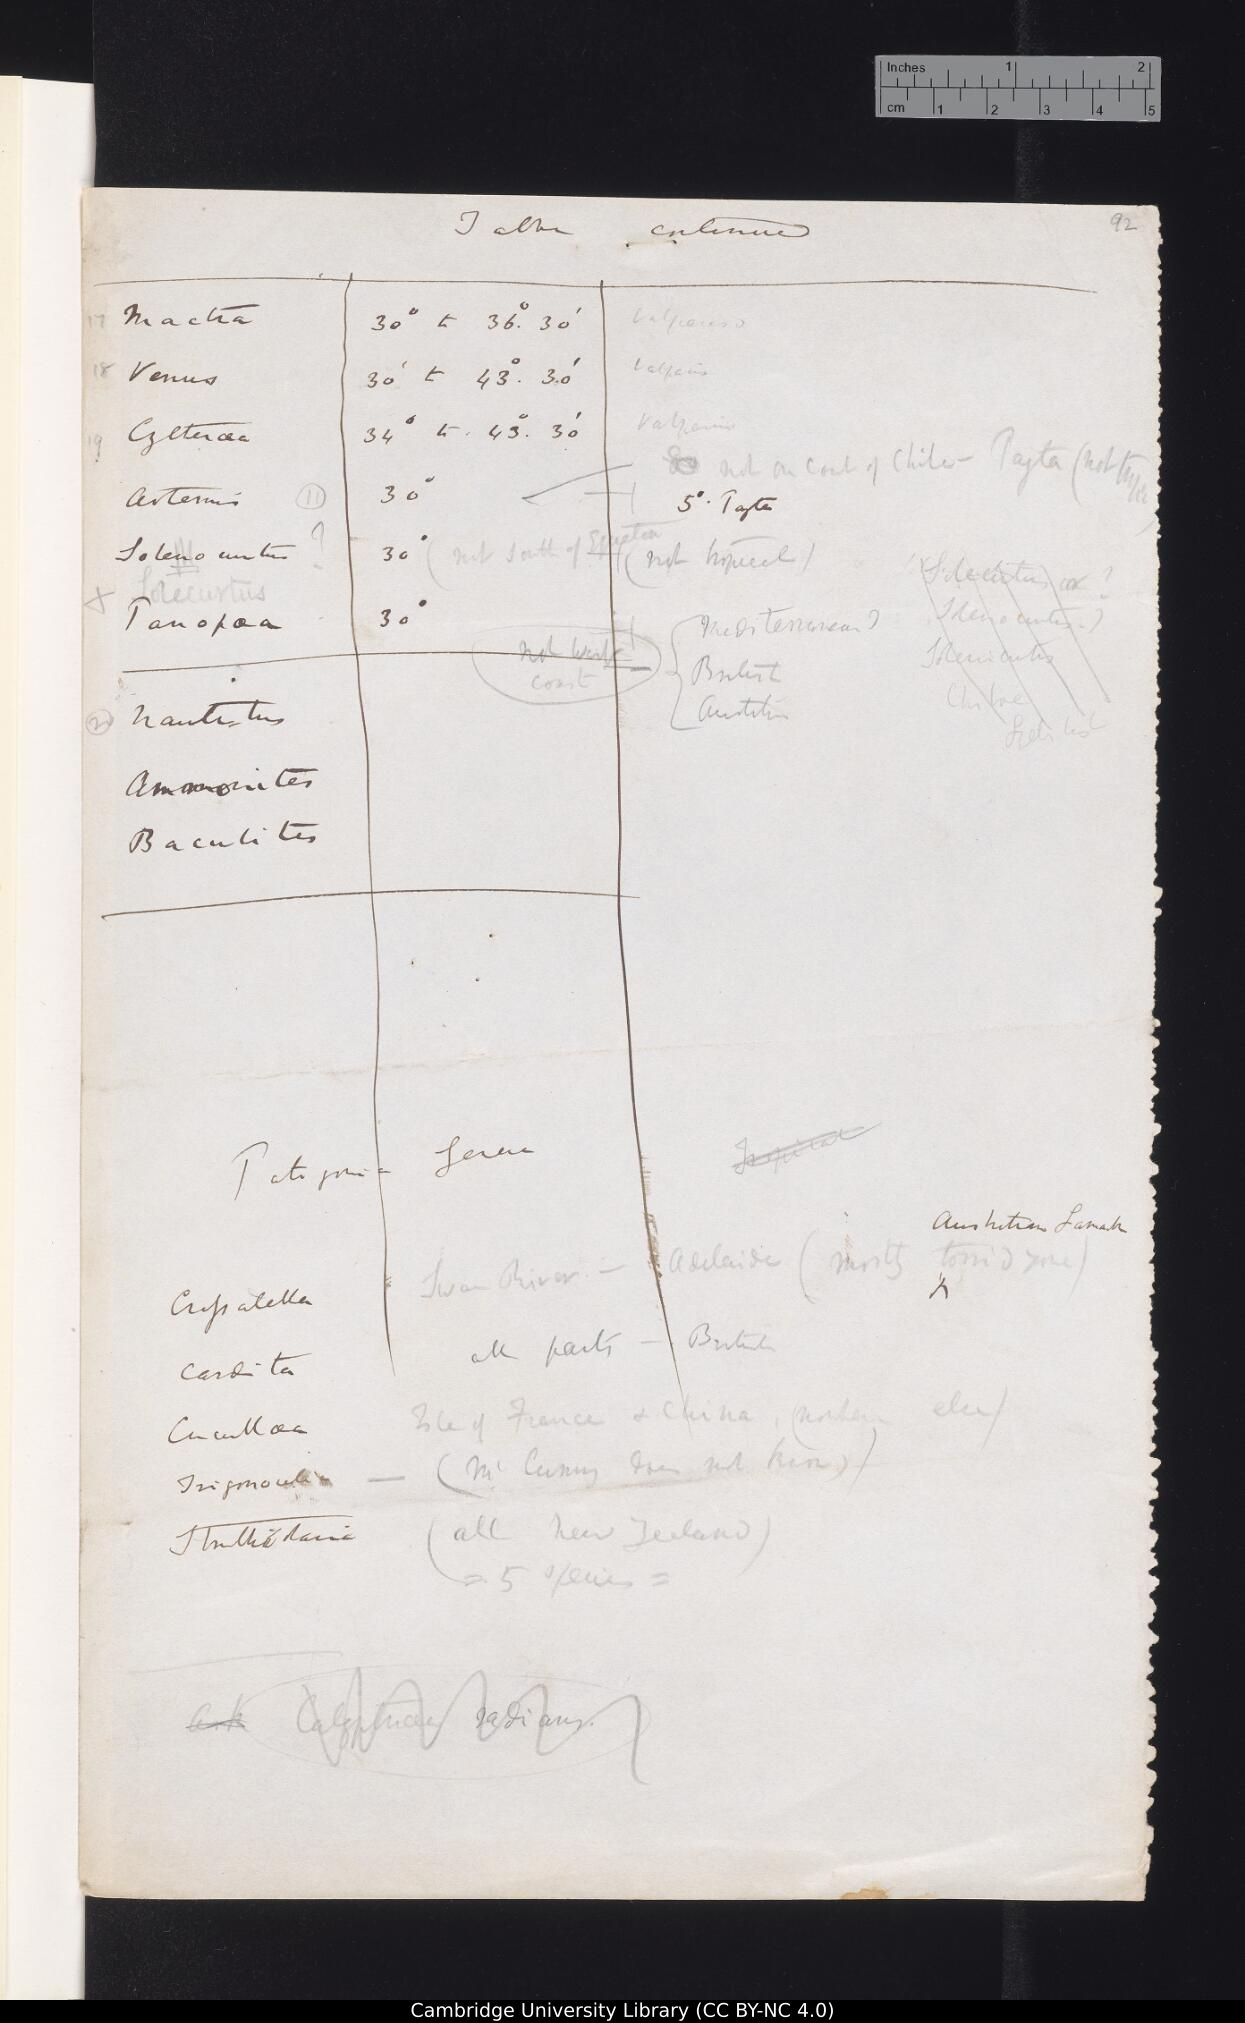 Inches 1 2
cm 1 2 3 4 5
92
Table continued
17 Mactra 30° to 36°. 30' Valparaiso
18 Venus 30' to 43°. 30' Valparaiso
19 Cytheraea 34° to. 43°. 30' Valparaiso
not on coast of Chiloe — Payta (not
Artemis (11) 30° 5°. Payta
Solenocurtus ? 30° (not South of Equator (not tropical)
Solecurtus
+ Panopaea 30°
Solecurtus or ?
Solenocurtus?
Chiloe
not west coast
Mediterranean?
British
Australia
Nautilus
Ammonites
Baculites
Patagonia Genera
Tropical
Australian Lamarck
Crassatella Swan River — Adelaide (mostly torrid zone)
Cardita all parts — British
Cucullaea Isle of France & China, (nowhere else)
Trigonocelia — (Mr Cuming does not know)
Struthiolaria (all New Zealand)
= 5 species =
ask Calyptraea radians.
Cambridge University Library (CC BY-NC 4.0)